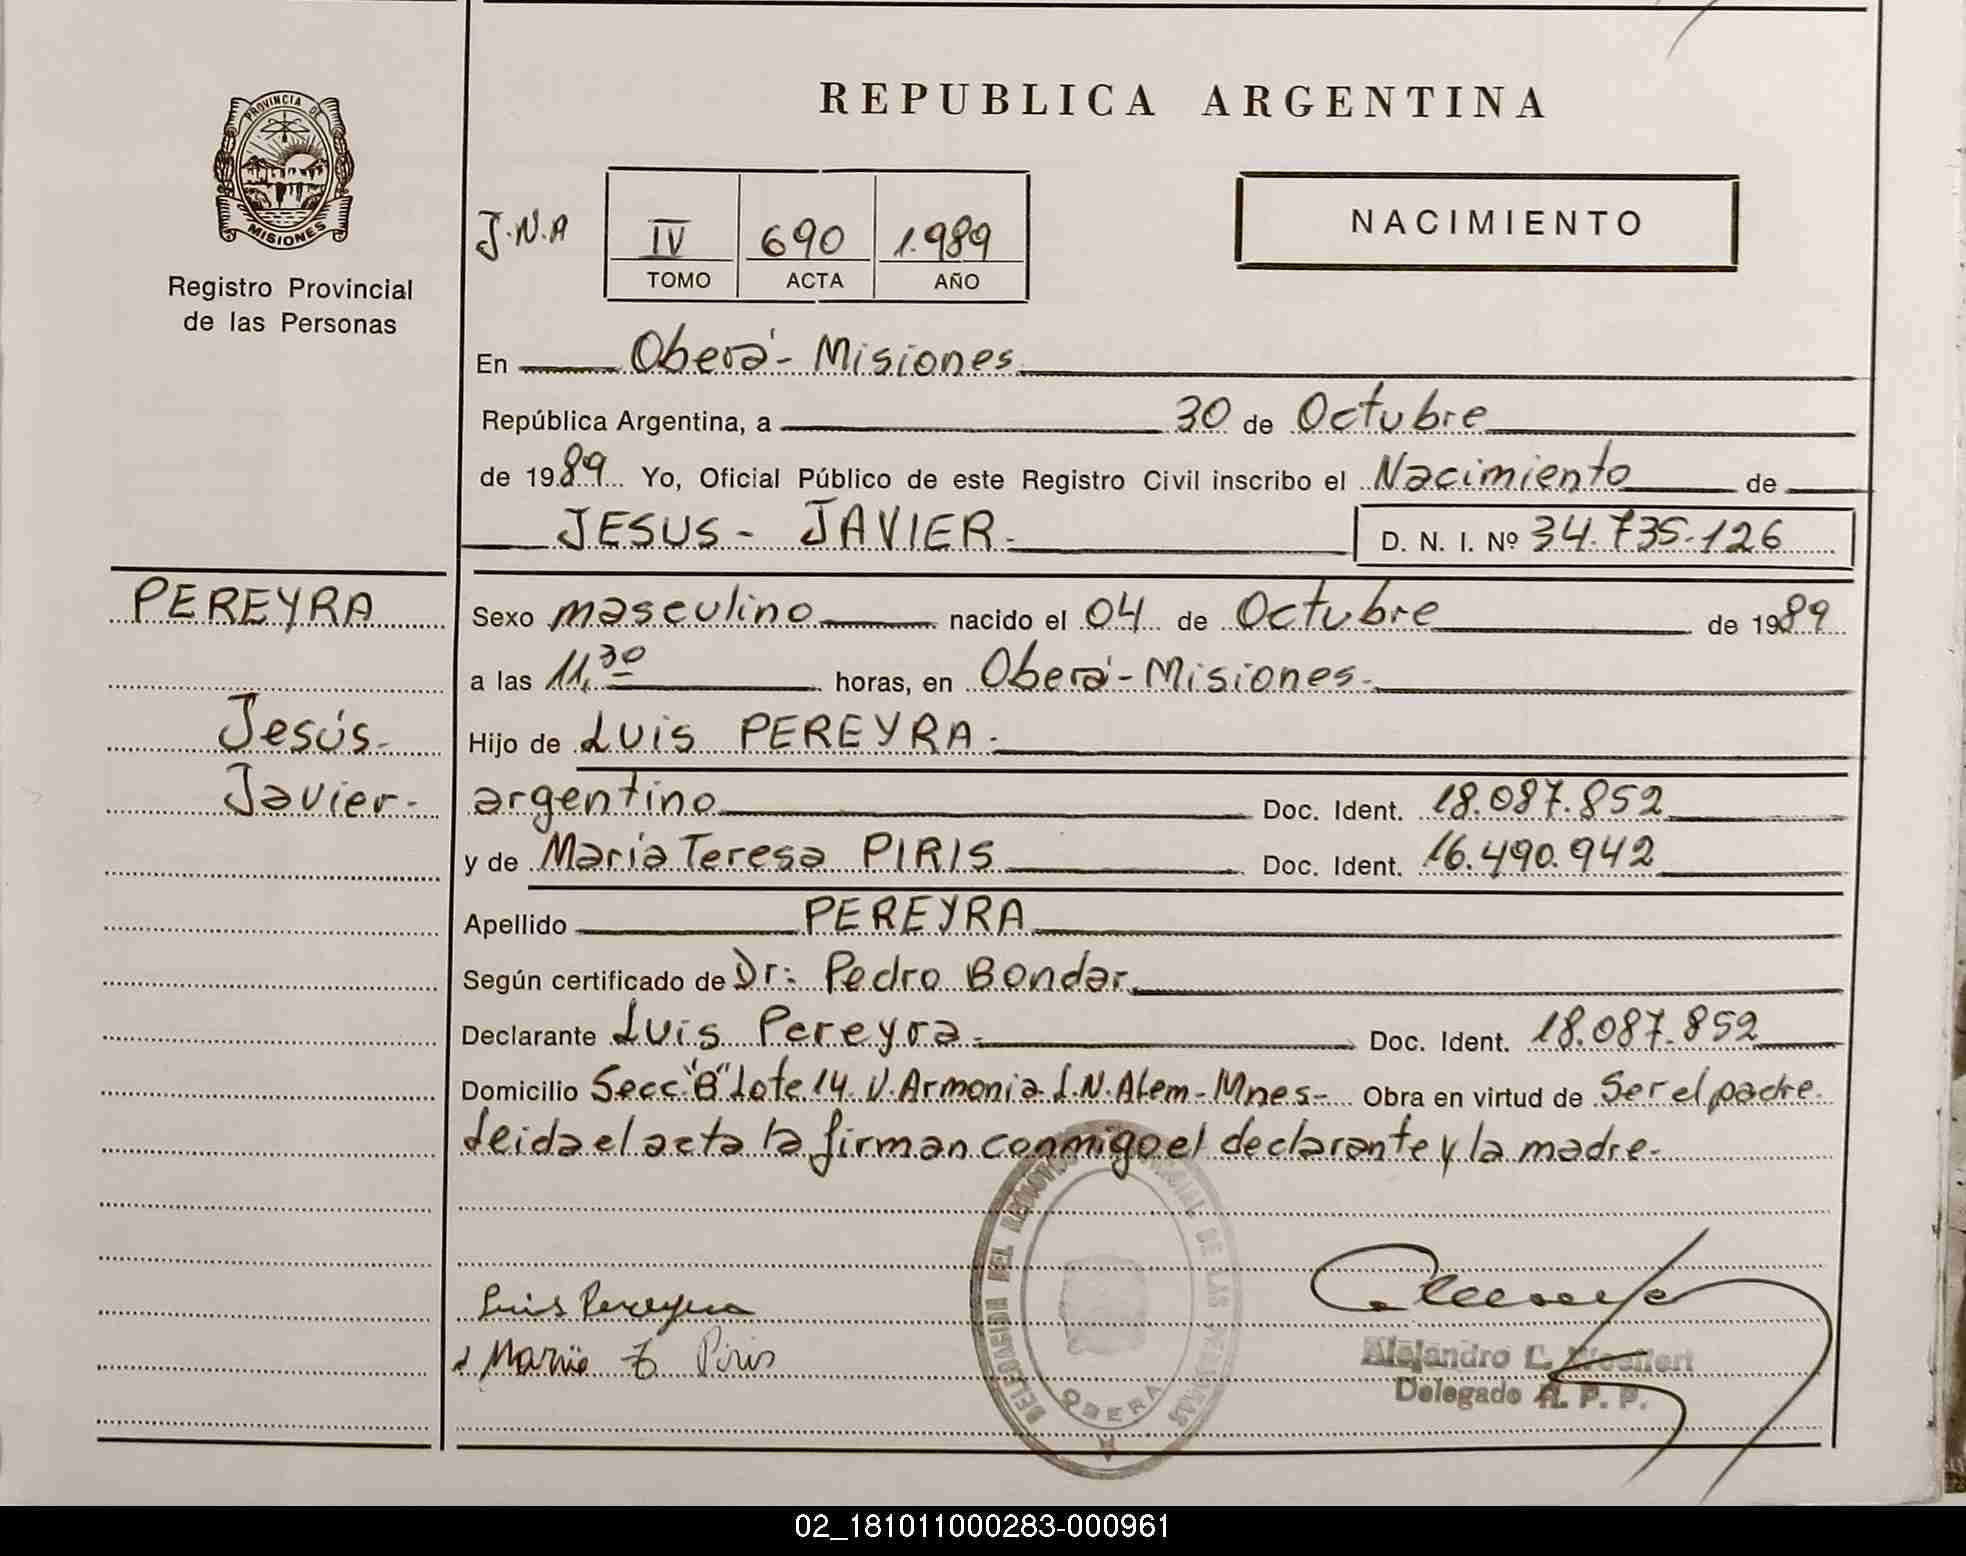 REPUBLICA ARGENTINA
PROVINCIA DE
MISIONES
Registro Provincial
de las Personas
J.N.A
IV 690 1.989
TOMO ACTA AÑO
NACIMIENTO
En Oberá- Misiones
República Argentina, a 30 de Octubre
de 1989 Yo, Oficial Público de este Registro Civil inscribo el Nacimiento de
JESUS- JAVIER.- D. N. I. Nº 34.735.126
PEREYRA
Jesús-
Javier-
Sexo masculino nacido el 04 de Octubre de 1989
a las 11,30 horas, en Oberá-Misiones.-
Hijo de Luis PEREYRA.-
argentino Doc. Ident. 18.087.852
y de María Teresa PIRIS Doc. Ident. 16.490.942
Apellido PEREYRA
Según certificado de Dr: Pedro Bondar
Declarante Luis Pereyra.- Doc. Ident. 18.087.852
Domicilio Secc."B" Lote 14 V. Armonia L.N. Alem-Mnes- Obra en virtud de Ser el padre.
Leida el acta la firman conmigo el declarante y la madre.-
Luis Pereyra
Maria T Piris
DELEGACION DEL REGISTRO PROVINCIAL DE LAS PERSONAS
OBERA
Alejandro C.
Delegado R. P. P.
02_181011000283-000961